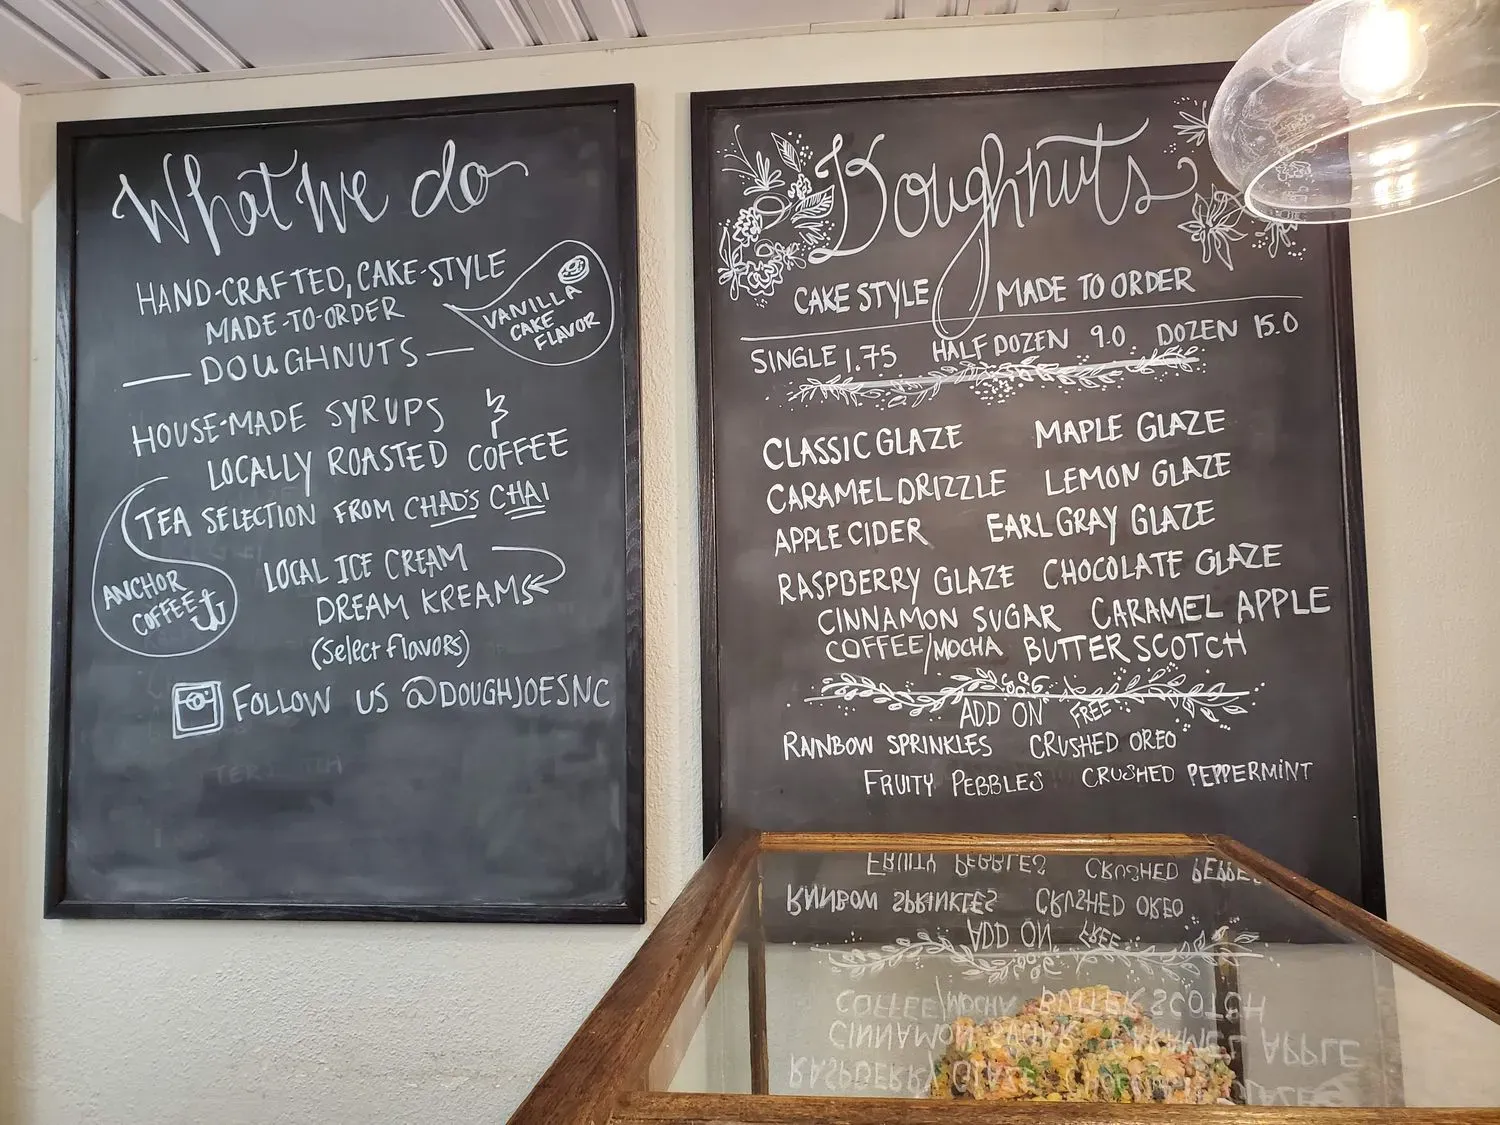 What We do
HAND-CRAFTED, CAKE-STYLE
MADE-TO-ORDER
DOUGHNUTS
VANILLA
CAKE
FLAVOR
HOUSE-MADE SYRUPS &
LOCALLY ROASTED COFFEE
TEA SELECTION FROM CHAD'S CHAI
ANCHOR
COFFEE
LOCAL ICE CREAM
DREAM KREAMS
(Select flavors)
FOLLOW US @DOUGHJOESNC
Doughnuts
CAKE STYLE MADE TO ORDER
SINGLE 1.75 HALF DOZEN 9.0 DOZEN 15.0
CLASSIC GLAZE MAPLE GLAZE
CARAMEL DRIZZLE LEMON GLAZE
APPLE CIDER EARL GRAY GLAZE
RASPBERRY GLAZE CHOCOLATE GLAZE
CINNAMON SUGAR CARAMEL APPLE
COFFEE/MOCHA BUTTER SCOTCH
ADD ON FREE
RAINBOW SPRINKLES CRUSHED OREO
FRUITY PEBBLES CRUSHED PEPPERMINT